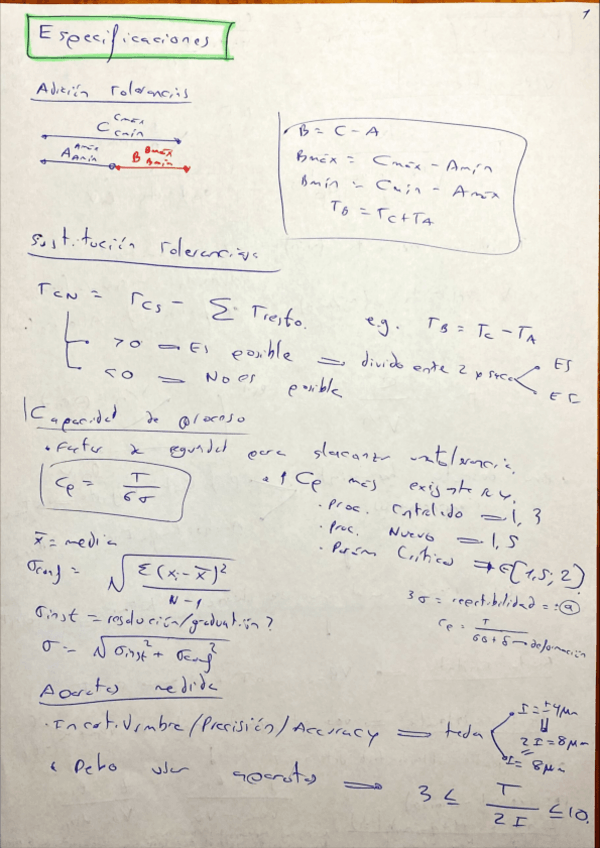 1
Especificaciones
Adición tolerancias
C Cmáx Cmín
A Amáx Amín B Bmáx Bmin
B = C - A
Bmáx = Cmáx - Amín
Bmin = Cmin - Amáx
TB = TC + TA
Sustitución tolerancias
TCN = TCS - Σ Tresto. e.g. TB = TC - TA
>0 ⇒ Es posible ⇒ divido ente 2 y saco ES
EI
<0 ⇒ No es posible
Capacidad de proceso
• Factor de seguridad para alcanzar una tolerancia.
Cp = T / 6σ
• ↑ Cp más exigente
• Proc. Cntrolado ⇒ 1,3
• Proc. Nuevo ⇒ 1,5
• Param Críticos ⇒ ∈ [1,5; 2]
x̄ = media
σconf = √(Σ(xi - x̄)² / N-1)
3σ = repetibilidad = a
σinst = resolución/graduation?
Cp = T / 6σ + δ → deformación
σ = √(σinst² + σconf²)
Aparatos medida
• Incertidumbre/Precisión/Accuracy ⇒ teda
I = ±4μm
2I = 8μm
I = 8μm
• Debo usar aparatos ⇒ 3 ≤ T / 2I ≤ 10.